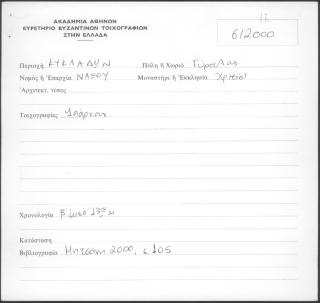 ΑΚΑΔΗΜΙΑ ΑΘΗΝΩΝ
ΕΥΡΕΤΗΡΙΟ ΒΥΖΑΝΤΙΝΩΝ ΤΟΙΧΟΓΡΑΦΙΩΝ
ΣΤΗΝ ΕΛΛΑΔΑ
6/2000
Περιοχή ΚΥΚΛΑΔΩΝ Πόλη ή Χωριό
Νομός ή Ἐπαρχία ΝΑΞΟΥ Μοναστήρι ή Ἐκκλησία
Ἀρχιτεκτ. τύπος
Τοιχογραφίες Ὑπάρχουν
Χρονολογία Β' μισό 13ου
Κατάσταση
Βιβλιογραφία Μητσάνη 2000, σ. 105